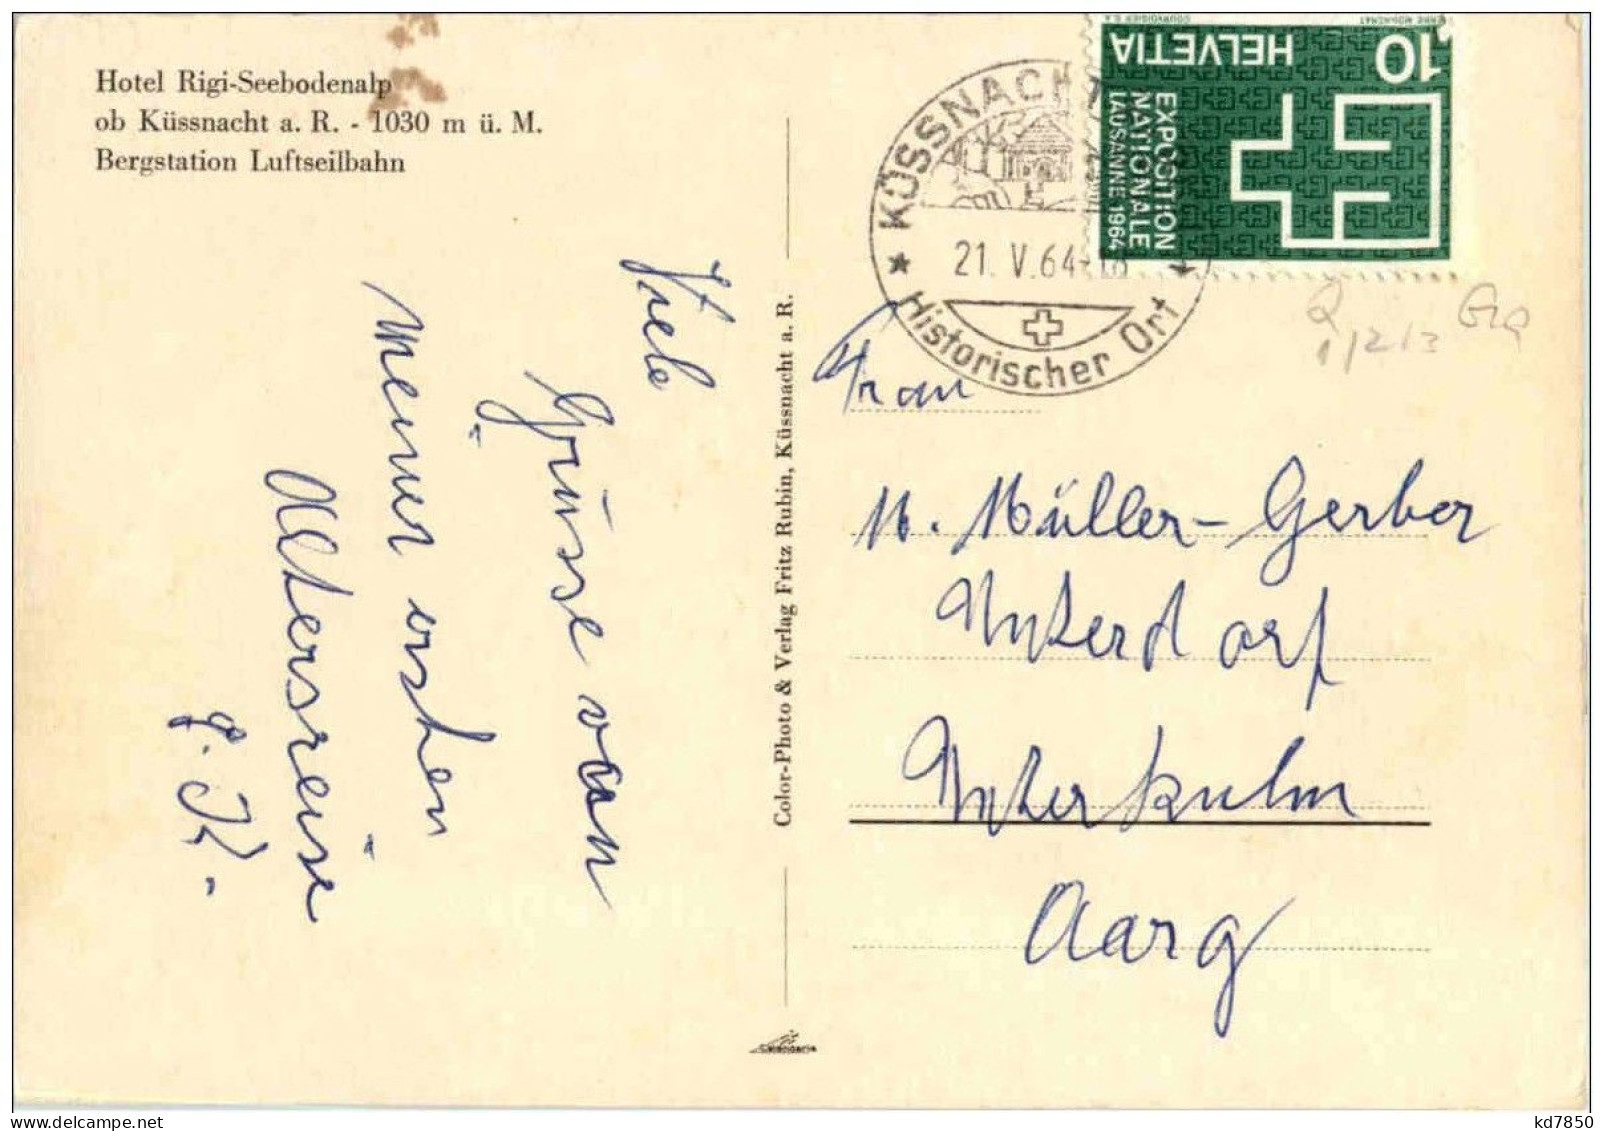 Hotel Rigi-Seebodenalp
ob Küssnacht a. R. - 1030 m ü. M.
Bergstation Luftseilbahn
Viele
Grüsse von
meiner ersten
Altersreise
G. K.
Color-Photo & Verlag Fritz Rubin, Küssnacht a. R.
KÜSSNACHT
21. V. 64-18
Historischer Ort
HELVETIA
10
EXPOSITION
NATIONALE
LAUSANNE 1964
COURVOISIER S.A.
Frau
M. Müller-Gerber
Unterdorf
Unterkulm
Aarg
delcampe.net
kd7850